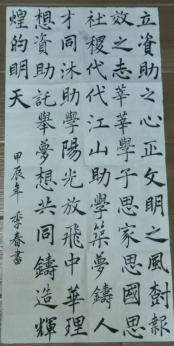 立資助之心正文明之風樹報
效之志莘莘學子思家思國思
社稷代代江山助學築夢鑄人
才同沐助學陽光放飛中華理
想資助託舉夢想共同鑄造輝
煌的明天
甲辰年 季春書